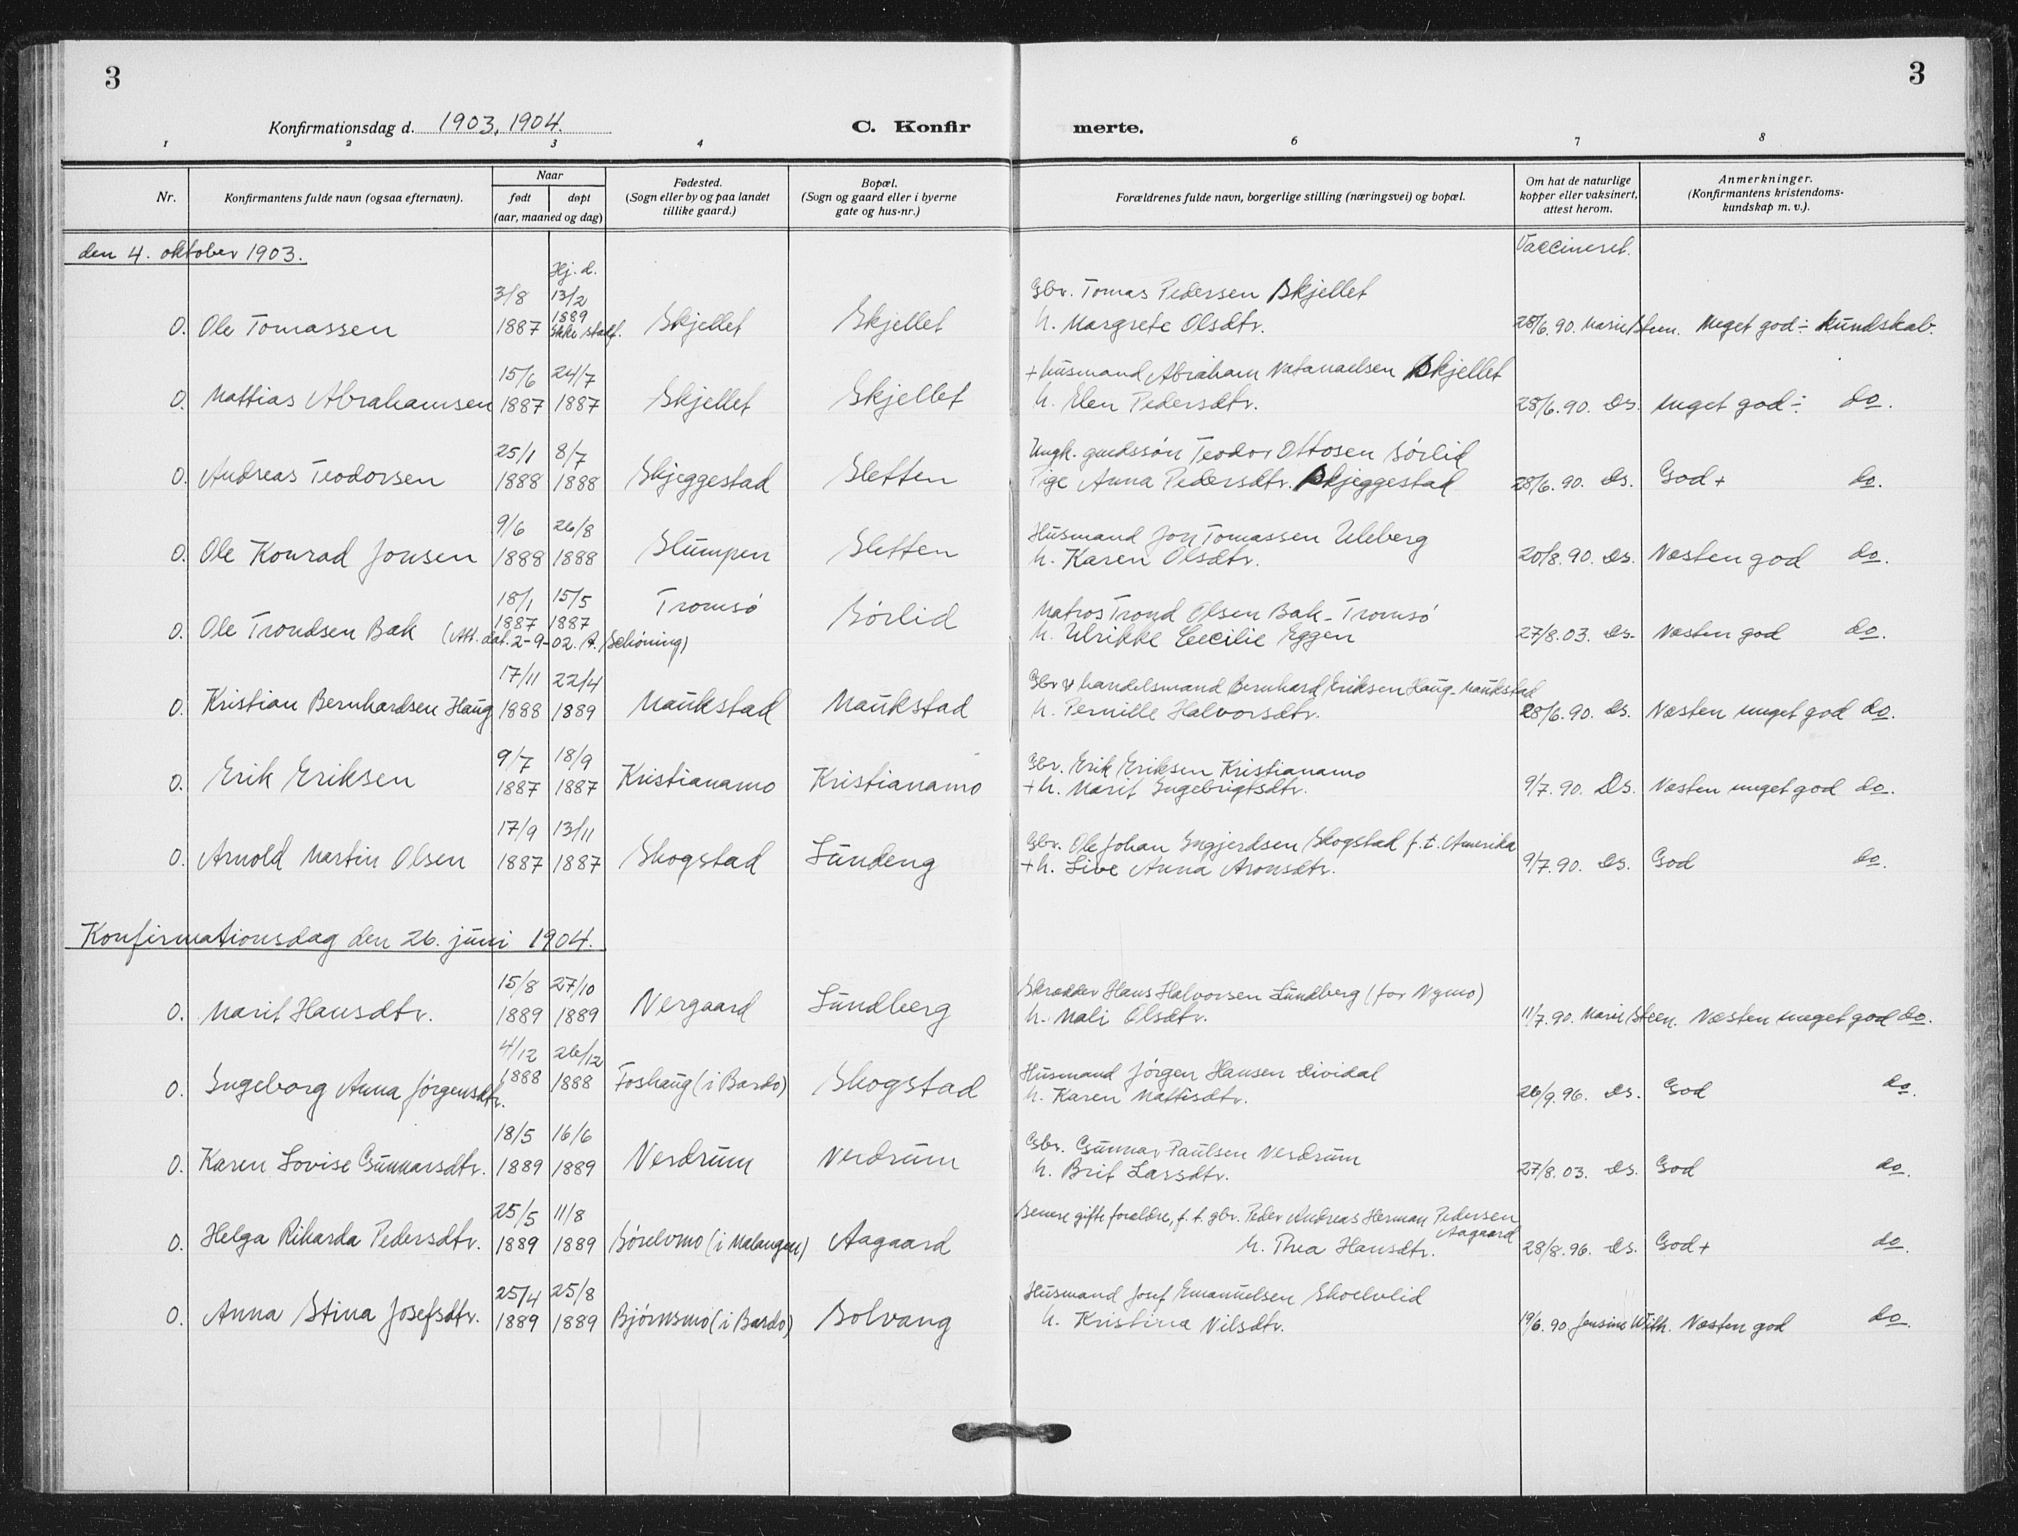 3
3
Konfirmationsdag d. 1903, 1904.
C. Konfir
merte.
1 2 3 4 6 7 8
Nr.
Konfirmantens fulde navn (ogsaa efternavn).
Naar
født døpt
(aar, maaned og dag)
Fødested.
(Sogn eller by og paa landet
tillike gaard.)
Bopæl.
(Sogn og gaard eller i byerne
gate og hus-nr.)
Forældrenes fulde navn, borgerlige stilling (næringsvei) og bopæl.
Om hat de naturlige
kopper eller vaksinert,
attest herom.
Anmerkninger.
(Konfirmantens kristendoms-
kundskap m. v.).
den 4. oktober 1903.
Vaccineret.
Hj. d.
3/8 13/2 Gbr. Tomas Pedersen Skjellet
1889
O. Ole Tomassen 1887 Ikke stadf. Skjellet Skjellet h. Margrete Olsdtr. 28/6. 90. Marie Steen. Meget god ÷ kundskab.
15/6 24/7 + husmand Abraham Natanaelsen Skjellet
O. Mattias Abrahamsen 1887 1887 Skjellet Skjellet h. Elen Pedersdtr. 28/6. 90. Ds. Meget god ÷ do.
25/1 8/7 Ungk. gaardssøn Teodor Ottosen Sørlid
O. Andreas Teodorsen 1888 1888 Skjeggestad Sletten Pige Anna Pedersdtr. Skjeggestad 28/6. 90. Ds. God + do.
9/6 26/8 Husmand Jon Tomassen Uleberg
O. Ole Konrad Jonsen 1888 1888 Slumpen Sletten h. Karen Olsdtr. 20/8. 90. Ds. Næsten god do.
18/1 15/5 Tromsø Matros Trond Olsen Bak - Tromsø
1887 1887 Sørlid
O. Ole Trondsen Bak (Att. dat. 2-9-02. A. Schöning) h. Ulrikke Cecilie Eggen 27/8. 03. Ds. Næsten god do.
17/11 22/4 Gbr & handelsmand Bernhard Eriksen Haug - Maukstad
O. Kristian Bernhardsen Haug 1888 1889 Maukstad Maukstad h. Pernille Halvorsdtr. 28/6. 90. Ds. Næsten meget god do.
9/7 18/9 Gbr. Erik Eriksen Kristianamo
O. Erik Eriksen 1887 1887 Kristianamo Kristianamo + h. Marit Ingebrigtsdtr. 9/7. 90. Ds. Næsten meget god do.
17/9 13/11 Gbr. Ole Johan Ingjerdsen Skogstad f. t. Amerika
O. Arnold Martin Olsen 1887 1887 Skogstad Lundeng + h. Live Anna Aronsdtr. 9/7. 90. Ds. God do.
Konfirmationsdag den 26. juni 1904.
15/8 27/10 Skrædder Hans Halvorsen Lundberg (før Nymo)
O. Marit Hansdtr. 1889 1889 Nergaard Lundberg h. Mali Olsdtr. 11/7. 90. Marie Steen. Næsten meget god do.
4/12 26/12 Husmand Jørgen Hansen Dividal
O. Ingeborg Anna Jørgensdtr. 1888 1888 Foshaug (i Bardo) Skogstad h. Karen Mattisdtr. 26/9. 96. Ds. God do.
18/5 16/6 Gbr. Gunnar Paulsen Verdrum
O. Karen Lovise Gunnarsdtr. 1889 1889 Verdrum Verdrum h. Brit Larsdtr. 27/8. 03. Ds. God do.
25/5 11/8 Senere gifte forældre, f. t. gbr. Peder Andreas Herman Pedersen
Aagaard
O. Helga Rikarda Pedersdtr. 1889 1889 Sørelvmo (i Malangen) Aagaard h. Thea Hansdtr. 28/8. 96. Ds. God + do.
25/4 25/8 Husmand Josef Emanuelsen Skoelvlid
O. Anna Stina Josefsdtr. 1889 1889 Bjørnsmo (i Bardo) Solvang h. Kristina Nilsdtr. 19/6. 90 Jensine With. Næsten god do.